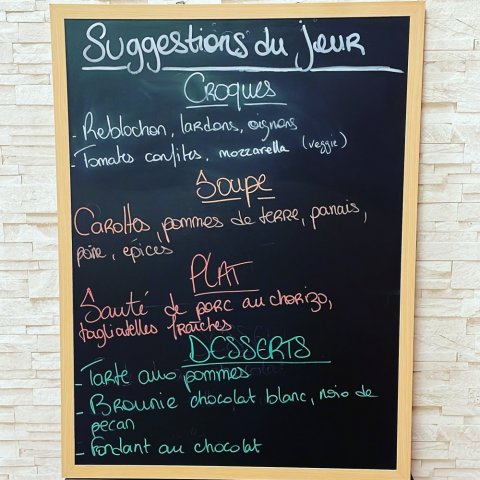 Suggestions du jour
CROQUES
- Reblochon, lardons, oignons
- Tomates confites, mozzarella (veggie)
Soupe
Carottes, pommes de terre, panais,
poire, épices
PLAT
Sauté de porc au chorizo,
tagliatelles fraîches
DESSERTS
- Tarte aux pommes
- Brownie chocolat blanc, noix de
pecan
- Fondant au chocolat